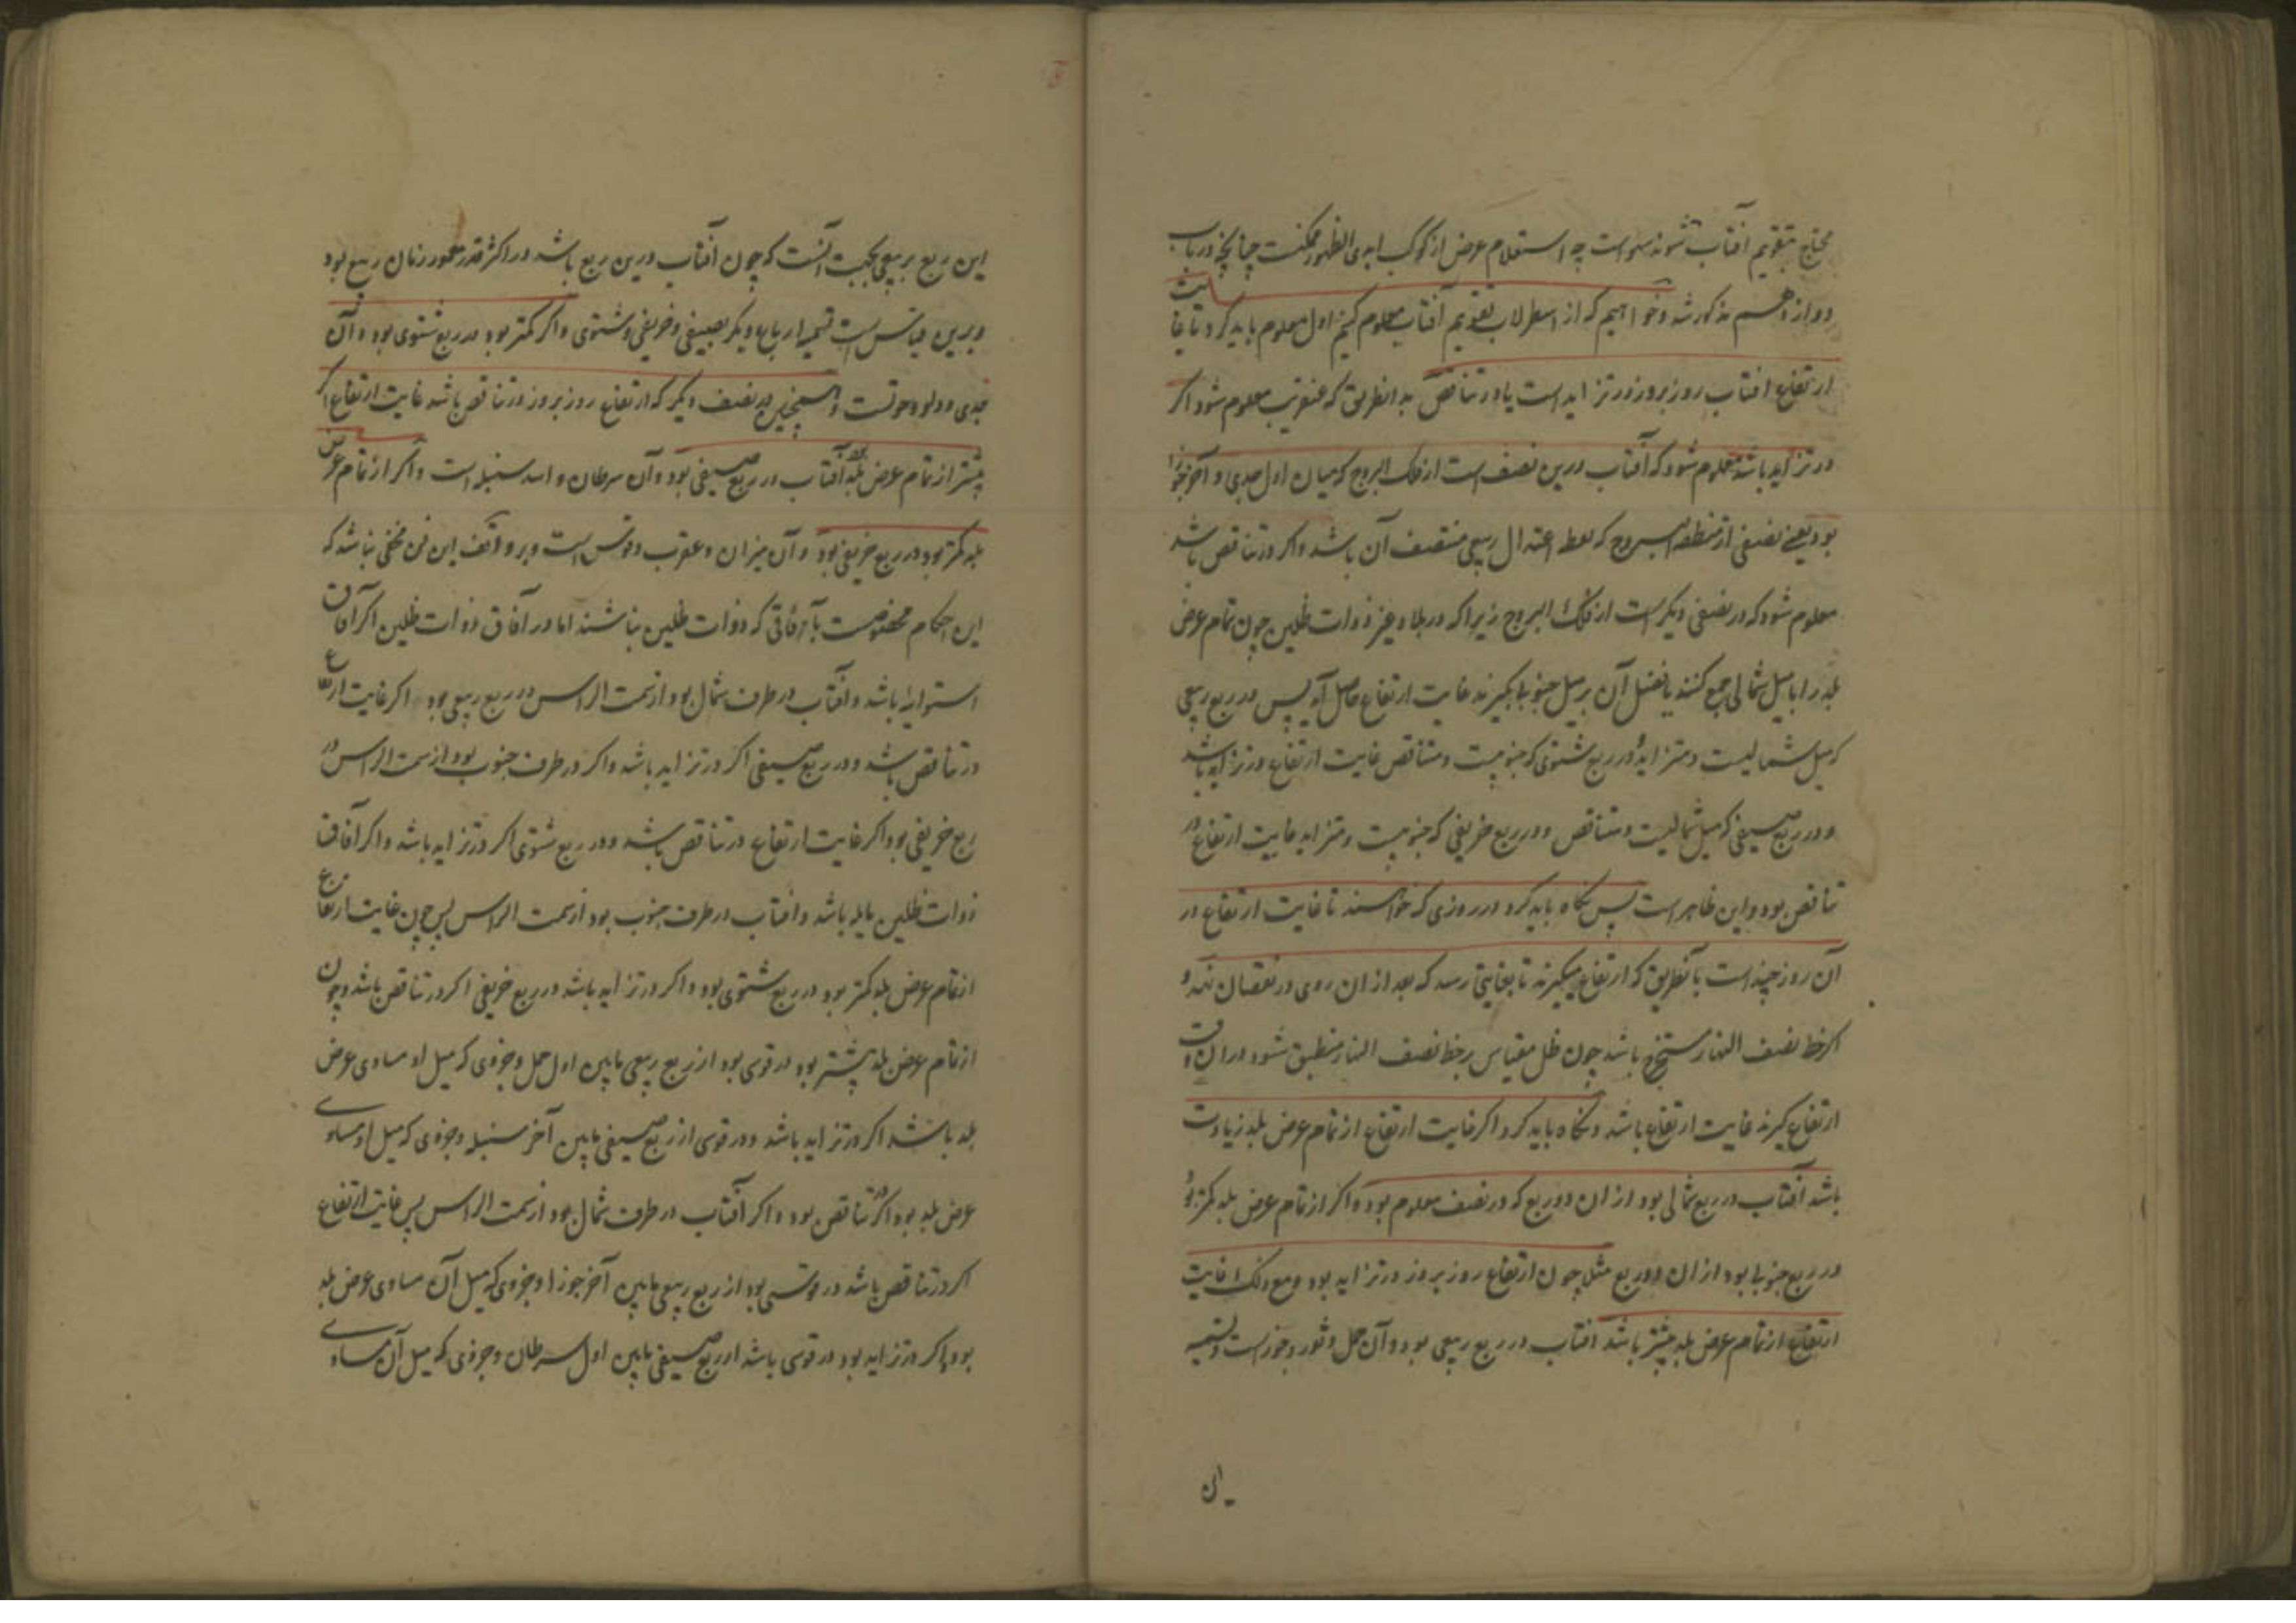 محتاج بتقویم آفتاب نشوند سهواست چه استعلام عرض از کوکب ابدی الظهور ممکنست چنانچه در باب
دوازدهم مذکور شد و خواهیم که از اسطرلاب تقویم آفتاب معلوم کنیم اول معلوم باید کرد تا غایت
ارتفاع افتاب روز بروز در تزاید است یا در تناقص بدانطریق که عنقریب معلوم شود اکر
در تزاید باشد معلوم شود که آفتاب درین نصف است از فلک البروج که میان اول جدی و آخر جوزا
بود یعنی نصفی از منطقة البروج که نقطه اعتدال ربیعی منتصف آن باشد و اکر در تناقص باشد
معلوم شود که در نصفی دیکر است از فلک البروج زیرا که در بلاد غیر ذوات ظلین چون تمام عرض
بلد را با میل شمالی جمع کنند یا فضل آن بر میل جنوبی بکیرند غایت ارتفاع حاصل آید پس در ربع ربیعی
که میل شمالیست و متزاید و در ربع شتوی که جنوبیست و متناقص غایت ارتفاع در تزاید باشد
و در ربع صیفی که میل شمالیست و متناقص و در ربع خریفی که جنوبیست و متزاید غایت ارتفاع در
تناقص بود و این ظاهر است پس نکاه باید کرد در روزی که خواسند تا غایت ارتفاع در
آن روز چند است بآنطریق که ارتفاع میکیرند تا بغایتی رسد که بعد از ان روی در نقصان نهد و
اکر خط نصف النهار مستخرج باشد چون ظل مقیاس بر خط نصف النهار منطبق شود در ان وقت
ارتفاع کیرند غایت ارتفاع باشد و نکاه باید کرد اکر غایت ارتفاع از تمام عرض بلد زیادت
باشد آفتاب در ربع شمالی بود از ان دو ربع که در نصف معلوم بود و اکر از تمام عرض بلد کمتر بود
در ربع جنوبی بود از ان دو ربع مثلا چون ارتفاع روز بروز در تزاید بود و مع ذلک غایت
ارتفاع از تمام عرض بلد بیشتر باشد آفتاب در ربع ربیعی بود و آن حمل و ثور و جوزاست و تسمیه
این ربع بربیعی بجهت آنست که چون آفتاب درین ربع باشد در اکثر قدر معمور زمان ربیع بود
و برین قیاس است تسمیه ارباع دیکر بصیفی و خریفی و شتوی و اکر کمتر بود در ربع شتوی بود و آن
جدی و دلو و حوتست و همچنین در نصف دیکر که ارتفاع روز بروز در تناقص باشد غایت ارتفاع اکر
بیشتر از تمام عرض بلد بود آفتاب در ربع صیفی بود و آن سرطان و اسد و سنبله است و اکر از تمام عرض
بلد کمتر بود در ربع خریفی بود و آن میزان و عقرب و قوس است و بر واقف این فن مخفی نباشد که
این احکام مخصوصست بآفاقی که ذوات ظلین نباشند اما در آفاق ذوات ظلین اکر آفاق
استوائیه باشد و آفتاب در طرف شمال بود از سمت الراس در ربع ربیعی بود اکر غایت ارتفاع
در تناقص باشد و در ربع صیفی اکر در تزاید باشد و اکر در طرف جنوب بود از سمت الراس در
ربع خریفی بود اکر غایت ارتفاع در تناقص باشد و در ربع شتوی اکر در تزاید باشد و اکر آفاق
ذوات ظلین مایله باشد و افتاب در طرف جنوب بود از سمت الراس پس چون غایت ارتفاع
از تمام عرض بلد کمتر بود در ربع شتوی بود و اکر در تزاید باشد در ربع خریفی اکر در تناقص باشد و چون
از تمام عرض بلد بیشتر بود در قوسی بود از ربع ربیعی مابین اول حمل و جزوی که میل او مساوی عرض
بلد باشد اکر در تزاید باشد و در قوسی از ربع صیفی مابین آخر سنبله و جزوی که میل او مساوی
عرض بلد بود اکر در تناقص بود و اکر آفتاب در طرف شمال بود از سمت الراس پس غایت ارتفاع
اکر در تناقص باشد در قوسی بود از ربع ربیعی مابین آخر جوزا و جزوی که میل آن مساوی عرض بلد
بود و اکر در تزاید بود در قوسی باشد از ربع صیفی مابین اول سرطان و جزوی که میل آن مساوی